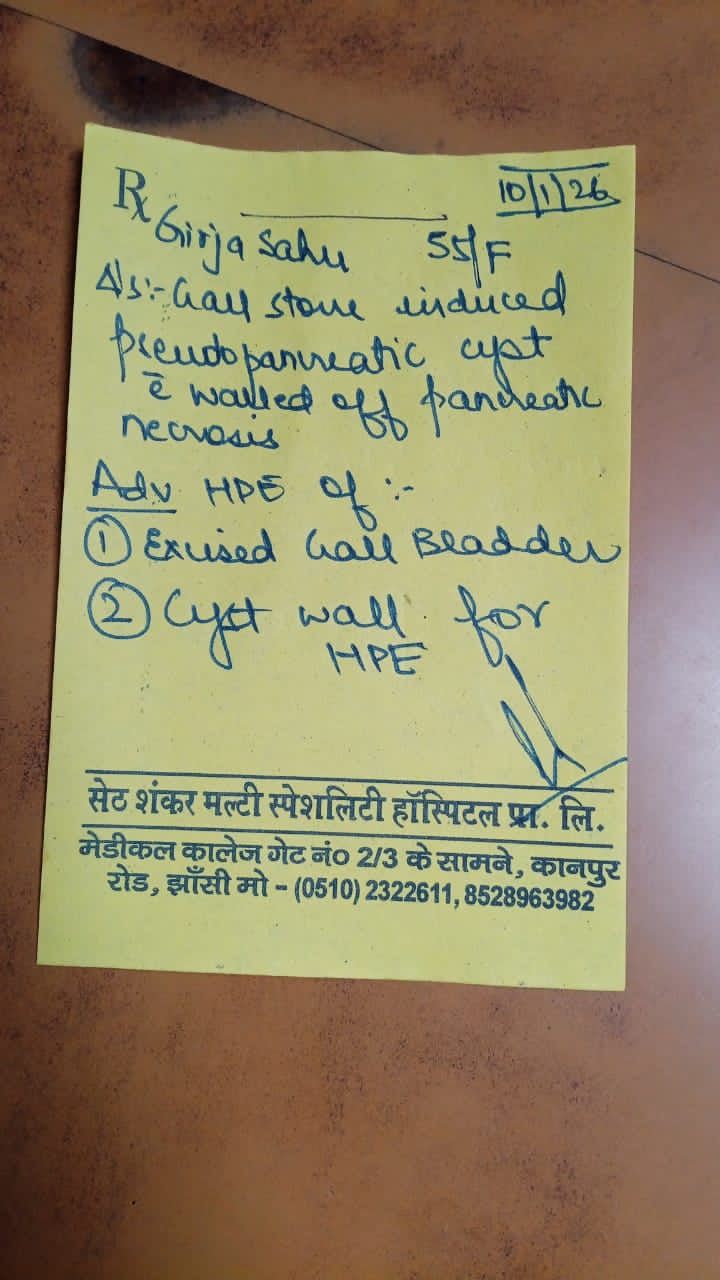 Rx
10/1/26
Girja Sahu 55/F
Δ/s:- Gall stone induced
pseudopancreatic cyst
c̄ walled off pancreatic
necrosis
Adv HPE of :-
① Excised Gall Bladder
② Cyst wall for
HPE
सेठ शंकर मल्टी स्पेशलिटी हॉस्पिटल प्रा. लि.
मेडीकल कालेज गेट नं० 2/3 के सामने, कानपुर
रोड, झाँसी मो - (0510) 2322611, 8528963982